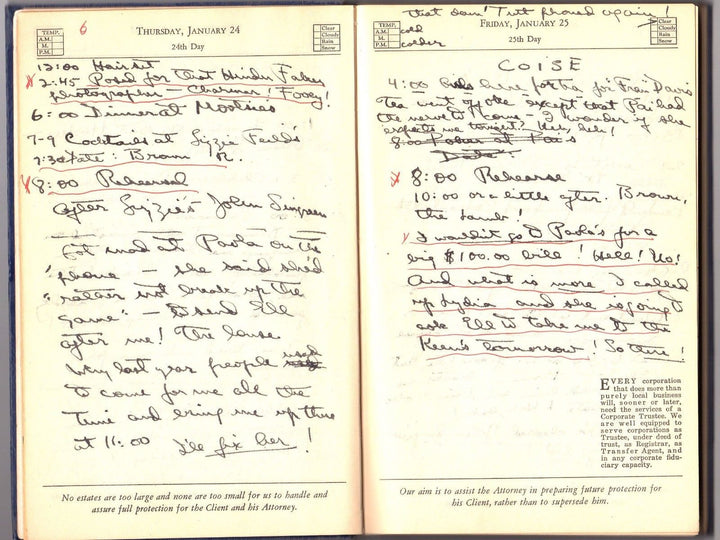 TEMP.
A.M.
M.
P.M.
6
THURSDAY, JANUARY 24
24th Day
Clear
Cloudy
Rain
Snow
12:00 Hair set
x 2:45 Posed for that Hindu Faker
photographer – Charmer! Fooey!
6:00 Dinner at
7-9 Cocktails at Lizzie
7:30 Date: Brown
x 8:00 Rehearsal
after Lizzie's John
Got mad at Paola on the
'phone – she said she'd
"rather not break up the
game" – to send
after me! The louse
Why last year people used
to come for me all the
time and bring me up there
at 11:00 I'll fix her!
No estates are too large and none are too small for us to handle and
assure full protection for the Client and his Attorney.
that again!
TEMP.
A.M. cold
M.
P.M. colder
FRIDAY, JANUARY 25
25th Day
Clear
Cloudy
Rain
Snow
COISE
4:00 here for tea for Fran Davis
Tea went quote except that had
the nerve to come – I wonder if she
expects me tonight? Heh, heh!
8:00 Poker at
Date
x 8:00 Rehearse
10:00 or a little after. Brown,
the lamb!
I wouldn't go to Paola's for a
big $100.00 bill! Hell! No!
And what is more I called
up Lydia and she is going to
ask to take me to the
tomorrow! So there!
EVERY corporation
that does more than
purely local business
will, sooner or later,
need the services of a
Corporate Trustee. We
are well equipped to
serve corporations as
Trustee, under deed of
trust, as Registrar, as
Transfer Agent, and
in any corporate fidu-
ciary capacity.
Our aim is to assist the Attorney in preparing future protection for
his Client, rather than to supersede him.